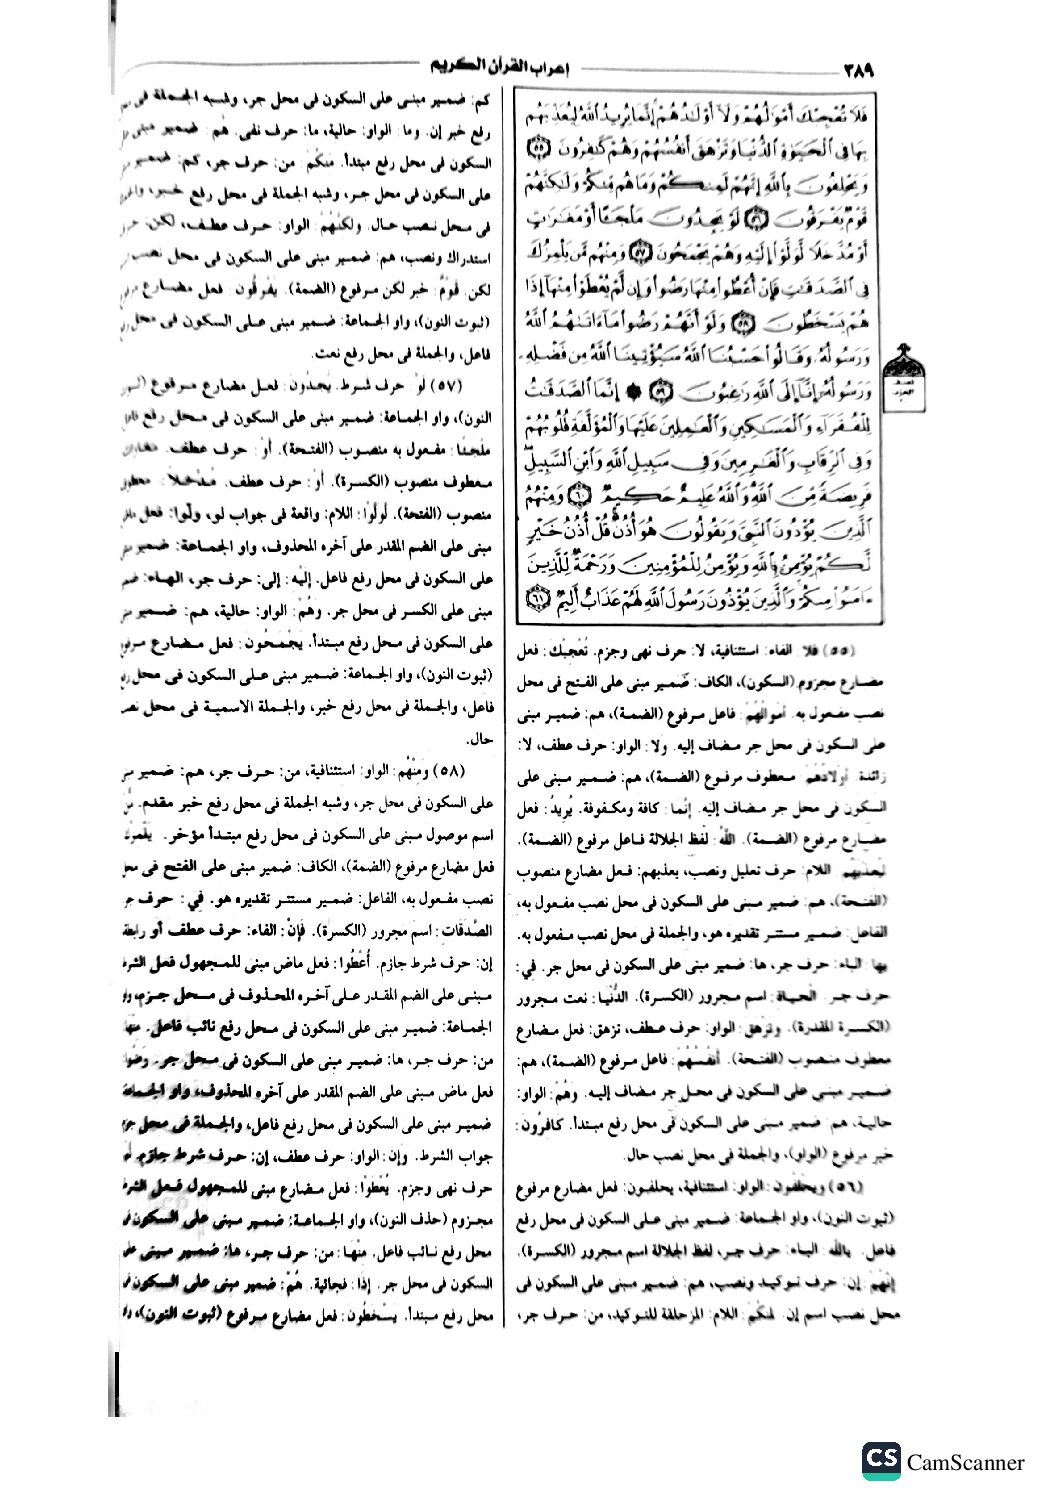 ٣٨٩
إعراب القرآن الكريم
فَلَا تُعْجِبْكَ أَمْوَالُهُمْ وَلَا أَوْلَادُهُمْ إِنَّمَا يُرِيدُ اللَّهُ لِيُعَذِّبَهُم
بِهَا فِي الْحَيَوٰةِ الدُّنْيَا وَتَزْهَقَ أَنفُسُهُمْ وَهُمْ كَافِرُونَ ٥٥
وَيَحْلِفُونَ بِاللَّهِ إِنَّهُمْ لَمِنكُمْ وَمَا هُم مِّنكُمْ وَلَٰكِنَّهُمْ
قَوْمٌ يَفْرَقُونَ ٥٦ لَوْ يَجِدُونَ مَلْجَـًٔا أَوْ مَغَارَاتٍ
أَوْ مُدَّخَلًا لَّوَلَّوْا إِلَيْهِ وَهُمْ يَجْمَحُونَ ٥٧ وَمِنْهُم مَّن يَلْمِزُكَ
فِي الصَّدَقَاتِ فَإِنْ أُعْطُوا مِنْهَا رَضُوا وَإِن لَّمْ يُعْطَوْا مِنْهَا إِذَا
هُمْ يَسْخَطُونَ ٥٨ وَلَوْ أَنَّهُمْ رَضُوا مَا آتَاهُمُ اللَّهُ
وَرَسُولُهُ وَقَالُوا حَسْبُنَا اللَّهُ سَيُؤْتِينَا اللَّهُ مِن فَضْلِهِ
وَرَسُولُهُ إِنَّا إِلَى اللَّهِ رَاغِبُونَ ٥٩ ۞ إِنَّمَا الصَّدَقَاتُ
لِلْفُقَرَاءِ وَالْمَسَاكِينِ وَالْعَامِلِينَ عَلَيْهَا وَالْمُؤَلَّفَةِ قُلُوبُهُمْ
وَفِي الرِّقَابِ وَالْغَارِمِينَ وَفِي سَبِيلِ اللَّهِ وَابْنِ السَّبِيلِ
فَرِيضَةً مِّنَ اللَّهِ وَاللَّهُ عَلِيمٌ حَكِيمٌ ٦٠ وَمِنْهُمُ
الَّذِينَ يُؤْذُونَ النَّبِيَّ وَيَقُولُونَ هُوَ أُذُنٌ قُلْ أُذُنُ خَيْرٍ
لَّكُمْ يُؤْمِنُ بِاللَّهِ وَيُؤْمِنُ لِلْمُؤْمِنِينَ وَرَحْمَةٌ لِّلَّذِينَ
ءَامَنُوا مِنكُمْ وَالَّذِينَ يُؤْذُونَ رَسُولَ اللَّهِ لَهُمْ عَذَابٌ أَلِيمٌ ٦١
(٥٥) فلا الفاء: استئنافية، لا: حرف نهى وجزم. تُعْجِبْكَ: فعل
مضارع مجزوم (السكون)، الكاف: ضمير مبنى على الفتح فى محل
نصب مفعول به. أموالُهُمْ: فاعل مرفوع (الضمة)، هم: ضمير مبنى
على السكون فى محل جر مضاف إليه. ولا: الواو: حرف عطف، لا:
زائدة أولادُهُمْ معطوف مرفوع (الضمة)، هم: ضمير مبنى على
السكون فى محل جر مضاف إليه. إنَّما: كافة ومكفوفة. يُرِيدُ: فعل
مضارع مرفوع (الضمة). اللَّهُ: لفظ الجلالة فاعل مرفوع (الضمة).
لِيُعَذِّبَهُم اللام: حرف تعليل ونصب، يعذبهم: فعل مضارع منصوب
(الفتحة)، هم: ضمير مبنى على السكون فى محل نصب مفعول به،
الفاعل: ضمير مستتر تقديره هو، والجملة فى محل نصب مفعول به.
بها الباء: حرف جر، ها: ضمير مبنى على السكون فى محل جر. فِي:
حرف جر. الحياة: اسم مجرور (الكسرة). الدُّنْيا: نعت مجرور
(الكسرة المقدرة). وتزهق: الواو: حرف عطف، تزهق: فعل مضارع
معطوف منصوب (الفتحة). أنفُسُهُمْ: فاعل مرفوع (الضمة)، هم:
ضمير مبنى على السكون فى محل جر مضاف إليه. وهُمْ: الواو:
حالية، هم: ضمير مبنى على السكون فى محل رفع مبتدأ. كافرُون:
خبر مرفوع (الواو)، والجملة فى محل نصب حال.
(٥٦) ويحْلفُون: الواو: استئنافية، يحلفون: فعل مضارع مرفوع
(ثبوت النون)، واو الجماعة: ضمير مبنى على السكون فى محل رفع
فاعل. بالله: الباء: حرف جر، لفظ الجلالة اسم مجرور (الكسرة).
إنَّهُمْ: إن: حرف توكيد ونصب، هم: ضمير مبنى على السكون فى
محل نصب اسم إن. لمنكُمْ: اللام: المزحلقة للتوكيد، من: حرف جر،
كم: ضمير مبنى على السكون فى محل جر، وشبه الجملة فى
رفع خبر إن. وما: الواو: حالية، ما: حرف نفى. هم: ضمير مبنى
السكون فى محل رفع مبتدأ. منكُم: من: حرف جر، كم: ضمير
على السكون فى محل جر، وشبه الجملة فى محل رفع خبر،
فى محل نصب حال. ولكنَّهُمْ: الواو: حرف عطف، لكن:
استدراك ونصب، هم: ضمير مبنى على السكون فى محل نصب
لكن. قومٌ: خبر لكن مرفوع (الضمة). يفرقُون: فعل مضارع
(ثبوت النون)، واو الجماعة: ضمير مبنى على السكون فى محل
فاعل، والجملة فى محل رفع نعت.
(٥٧) لوْ: حرف شرط. يجدُون: فعل مضارع مرفوع (ثبوت
النون)، واو الجماعة: ضمير مبنى على السكون فى محل رفع
ملجئا: مفعول به منصوب (الفتحة). أوْ: حرف عطف. مغارات
معطوف منصوب (الكسرة). أو: حرف عطف. مُدّخلاً: معطوف
منصوب (الفتحة). لَولَّوْا: اللام: واقعة فى جواب لو، ولَّوا: فعل
مبنى على الضم المقدر على آخره المحذوف، واو الجماعة: ضمير
على السكون فى محل رفع فاعل. إليْه: إلى: حرف جر، الهاء:
مبنى على الكسر فى محل جر. وهُمْ: الواو: حالية، هم: ضمير
على السكون فى محل رفع مبتدأ. يجْمحُون: فعل مضارع
(ثبوت النون)، واو الجماعة: ضمير مبنى على السكون فى محل
فاعل، والجملة فى محل رفع خبر، والجملة الاسمية فى محل
حال.
(٥٨) ومنْهُم: الواو: استئنافية، من: حرف جر، هم: ضمير
على السكون فى محل جر، وشبه الجملة فى محل رفع خبر مقدم.
اسم موصول مبنى على السكون فى محل رفع مبتدأ مؤخر.
فعل مضارع مرفوع (الضمة)، الكاف: ضمير مبنى على الفتح فى
نصب مفعول به، الفاعل: ضمير مستتر تقديره هو. فِي: حرف
الصَّدقَات: اسم مجرور (الكسرة). فإنْ: الفاء: حرف عطف أو رابطة
إن: حرف شرط جازم. أُعْطُوا: فعل ماض مبنى للمجهول فعل الشرط
مبنى على الضم المقدر على آخره المحذوف فى محل جزم،
الجماعة: ضمير مبنى على السكون فى محل رفع نائب فاعل. منها
من: حرف جر، ها: ضمير مبنى على السكون فى محل جر.
فعل ماض مبنى على الضم المقدر على آخره المحذوف، واو الجماعة
ضمير مبنى على السكون فى محل رفع فاعل، والجملة فى محل
جواب الشرط. وإن: الواو: حرف عطف، إن: حرف شرط جازم.
حرف نهى وجزم. يُعْطوْا: فعل مضارع مبنى للمجهول فعل الشرط
مجزوم (حذف النون)، واو الجماعة: ضمير مبنى على السكون
محل رفع نائب فاعل. منْها: من: حرف جر، ها: ضمير مبنى
السكون فى محل جر. إذا: فجائية. هُمْ: ضمير مبنى على السكون
محل رفع مبتدأ. يسْخطُون: فعل مضارع مرفوع (ثبوت النون)،
CS CamScanner